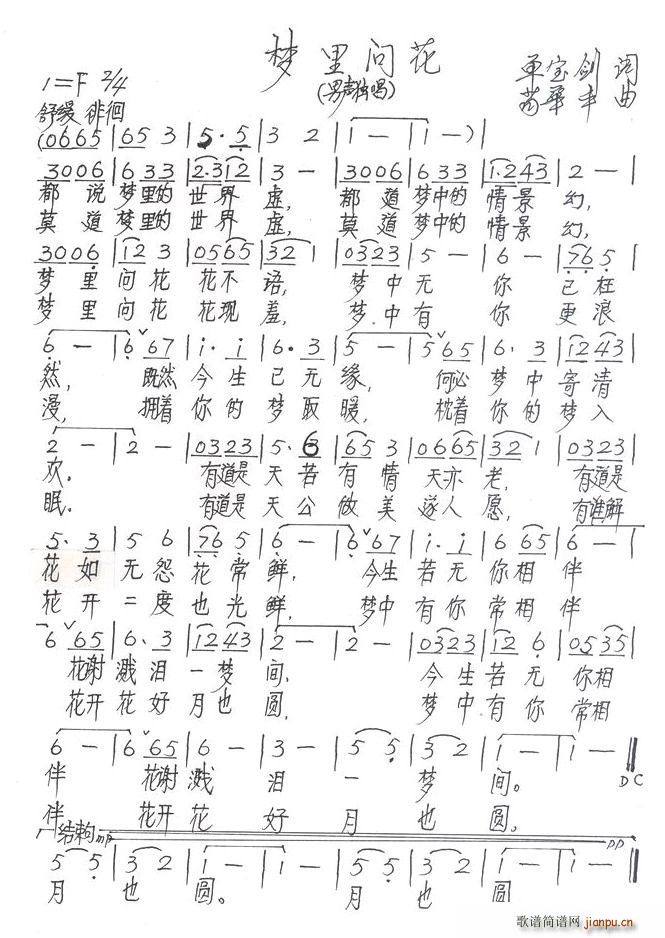 梦里问花
(男声独唱)
单宝剑 词
苗华丰 曲
1=F 2/4
舒缓 徘徊
(0665 | 65 3 | 5· 5 | 3 2 | 1 — | 1 —) |
3006 | 6 33 | 2·312 | 3 — | 3006 | 6 33 | 1·243 | 2 — |
都说梦里的世界虚, 都道梦中的情景幻,
莫道梦里的世界虚, 莫道梦中的情景幻,
3006 | 12 3 | 0565 | 32 1 | 0323 | 5 — | 6 — | 76 5 |
梦里问花花不语, 梦中无你已枉
梦里问花花现羞, 梦中有你更浪
6 — | 6 67 | i· i | 6· 3 | 5 — | 5 65 | 6· 3 | 12 43 |
然, 既然今生已无缘, 何必梦中寄清
漫, 拥着你的梦取暖, 枕着你的梦入
2 — | 2 — | 0323 | 5· 6 | 65 3 | 0665 | 32 1 | 0323 |
欢。 有道是天若有情天亦老, 有道是
眠。 有道是天公做美遂人愿, 有谁解
5· 3 | 5 6 | 76 5 | 6 — | 6 67 | i· i | 6 65 | 6 — |
花如无怨花常鲜, 今生若无你相伴
花开二度也光鲜, 梦中有你常相伴
6 65 | 6· 3 | 12 43 | 2 — | 2 — | 0323 | 12 6 | 0535 |
花谢溅泪一梦间, 今生若无你相
花开花好月也圆, 梦中有你常相
6 — | 6 65 | 6 — | 3 — | 5 5 | 3 2 | 1 — | 1 — ‖
伴 花谢溅泪一梦间。 DC
伴, 花开花好月也圆。
结束句 mp pp
5 5 | 3 2 | 1 — | 1 — | 5 5 | 3 2 | 1 — | 1 — ‖
月也圆。 月也圆
歌谱简谱网
jianpu.cn